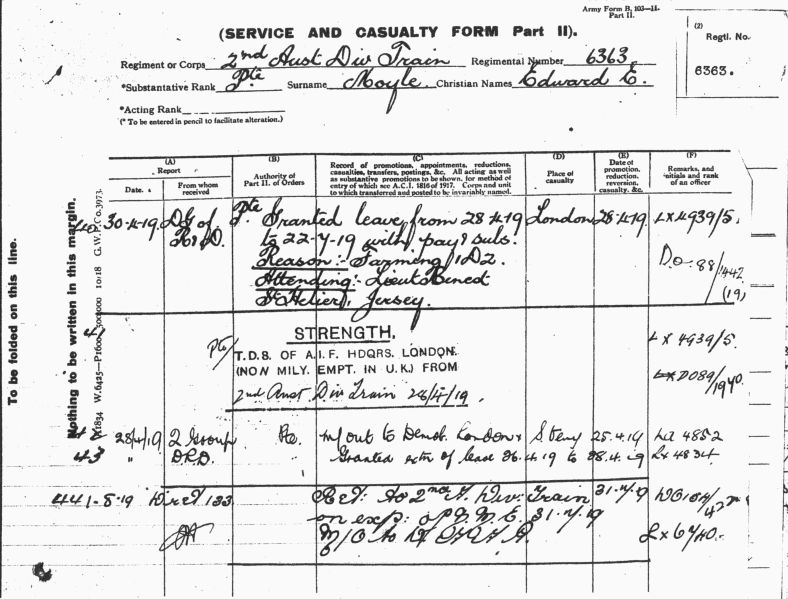 Army Form B. 103—11.
Part II.
(SERVICE AND CASUALTY FORM Part II).
(2)
Regtl. No.
6363.
Regiment or Corps 2nd Aust Div Train Regimental Number 6363
*Substantative Rank Pte Surname Moyle. Christian Names Edward E.
*Acting Rank
(* To be entered in pencil to facilitate alteration.)
To be folded on this line.
Nothing to be written in this margin.
(A)
Report
Date.
From whom
received
(B)
Authority of
Part II. of Orders
(C)
Record of promotions, appointments, reductions,
casualties, transfers, postings, &c. All acting as well
as substantive promotions to be shown, for method of
entry of which see A.C.I. 1816 of 1917. Corps and unit
to which transferred and posted to be invariably named.
(D)
Place of
casualty
(E)
Date of
promotion,
reduction,
reversion,
casualty, &c.
(F)
Remarks, and
initials and rank
of an officer
30-4-19. DG of Pte Granted leave from 28 4 19 London 28-4-19. LX 4939/5.
to 22-7-19 with pay & subs.
Reason:- Farming
Attending:- Lieut Bined
St Helier, Jersey.
D.O. 88/442
(19)
41
STRENGTH,
Pte
T.D.S. OF A.I.F. HDQRS. LONDON.
(NON MILY. EMPT. IN U.K.) FROM
2nd Aust Div Train 28/4/19.
LX 4939/5.
42 28/4/19 2 Group Pte. m/out to Demob. London 25.4.19 4852
43 " Granted extn of leave 26.4.19 to 28.4.19 LX 4834
44 1-8-19 133 to 2nd A. Div: Train 31-7-19
on exp: of N.M.E. 31-7-19
LX 6740.